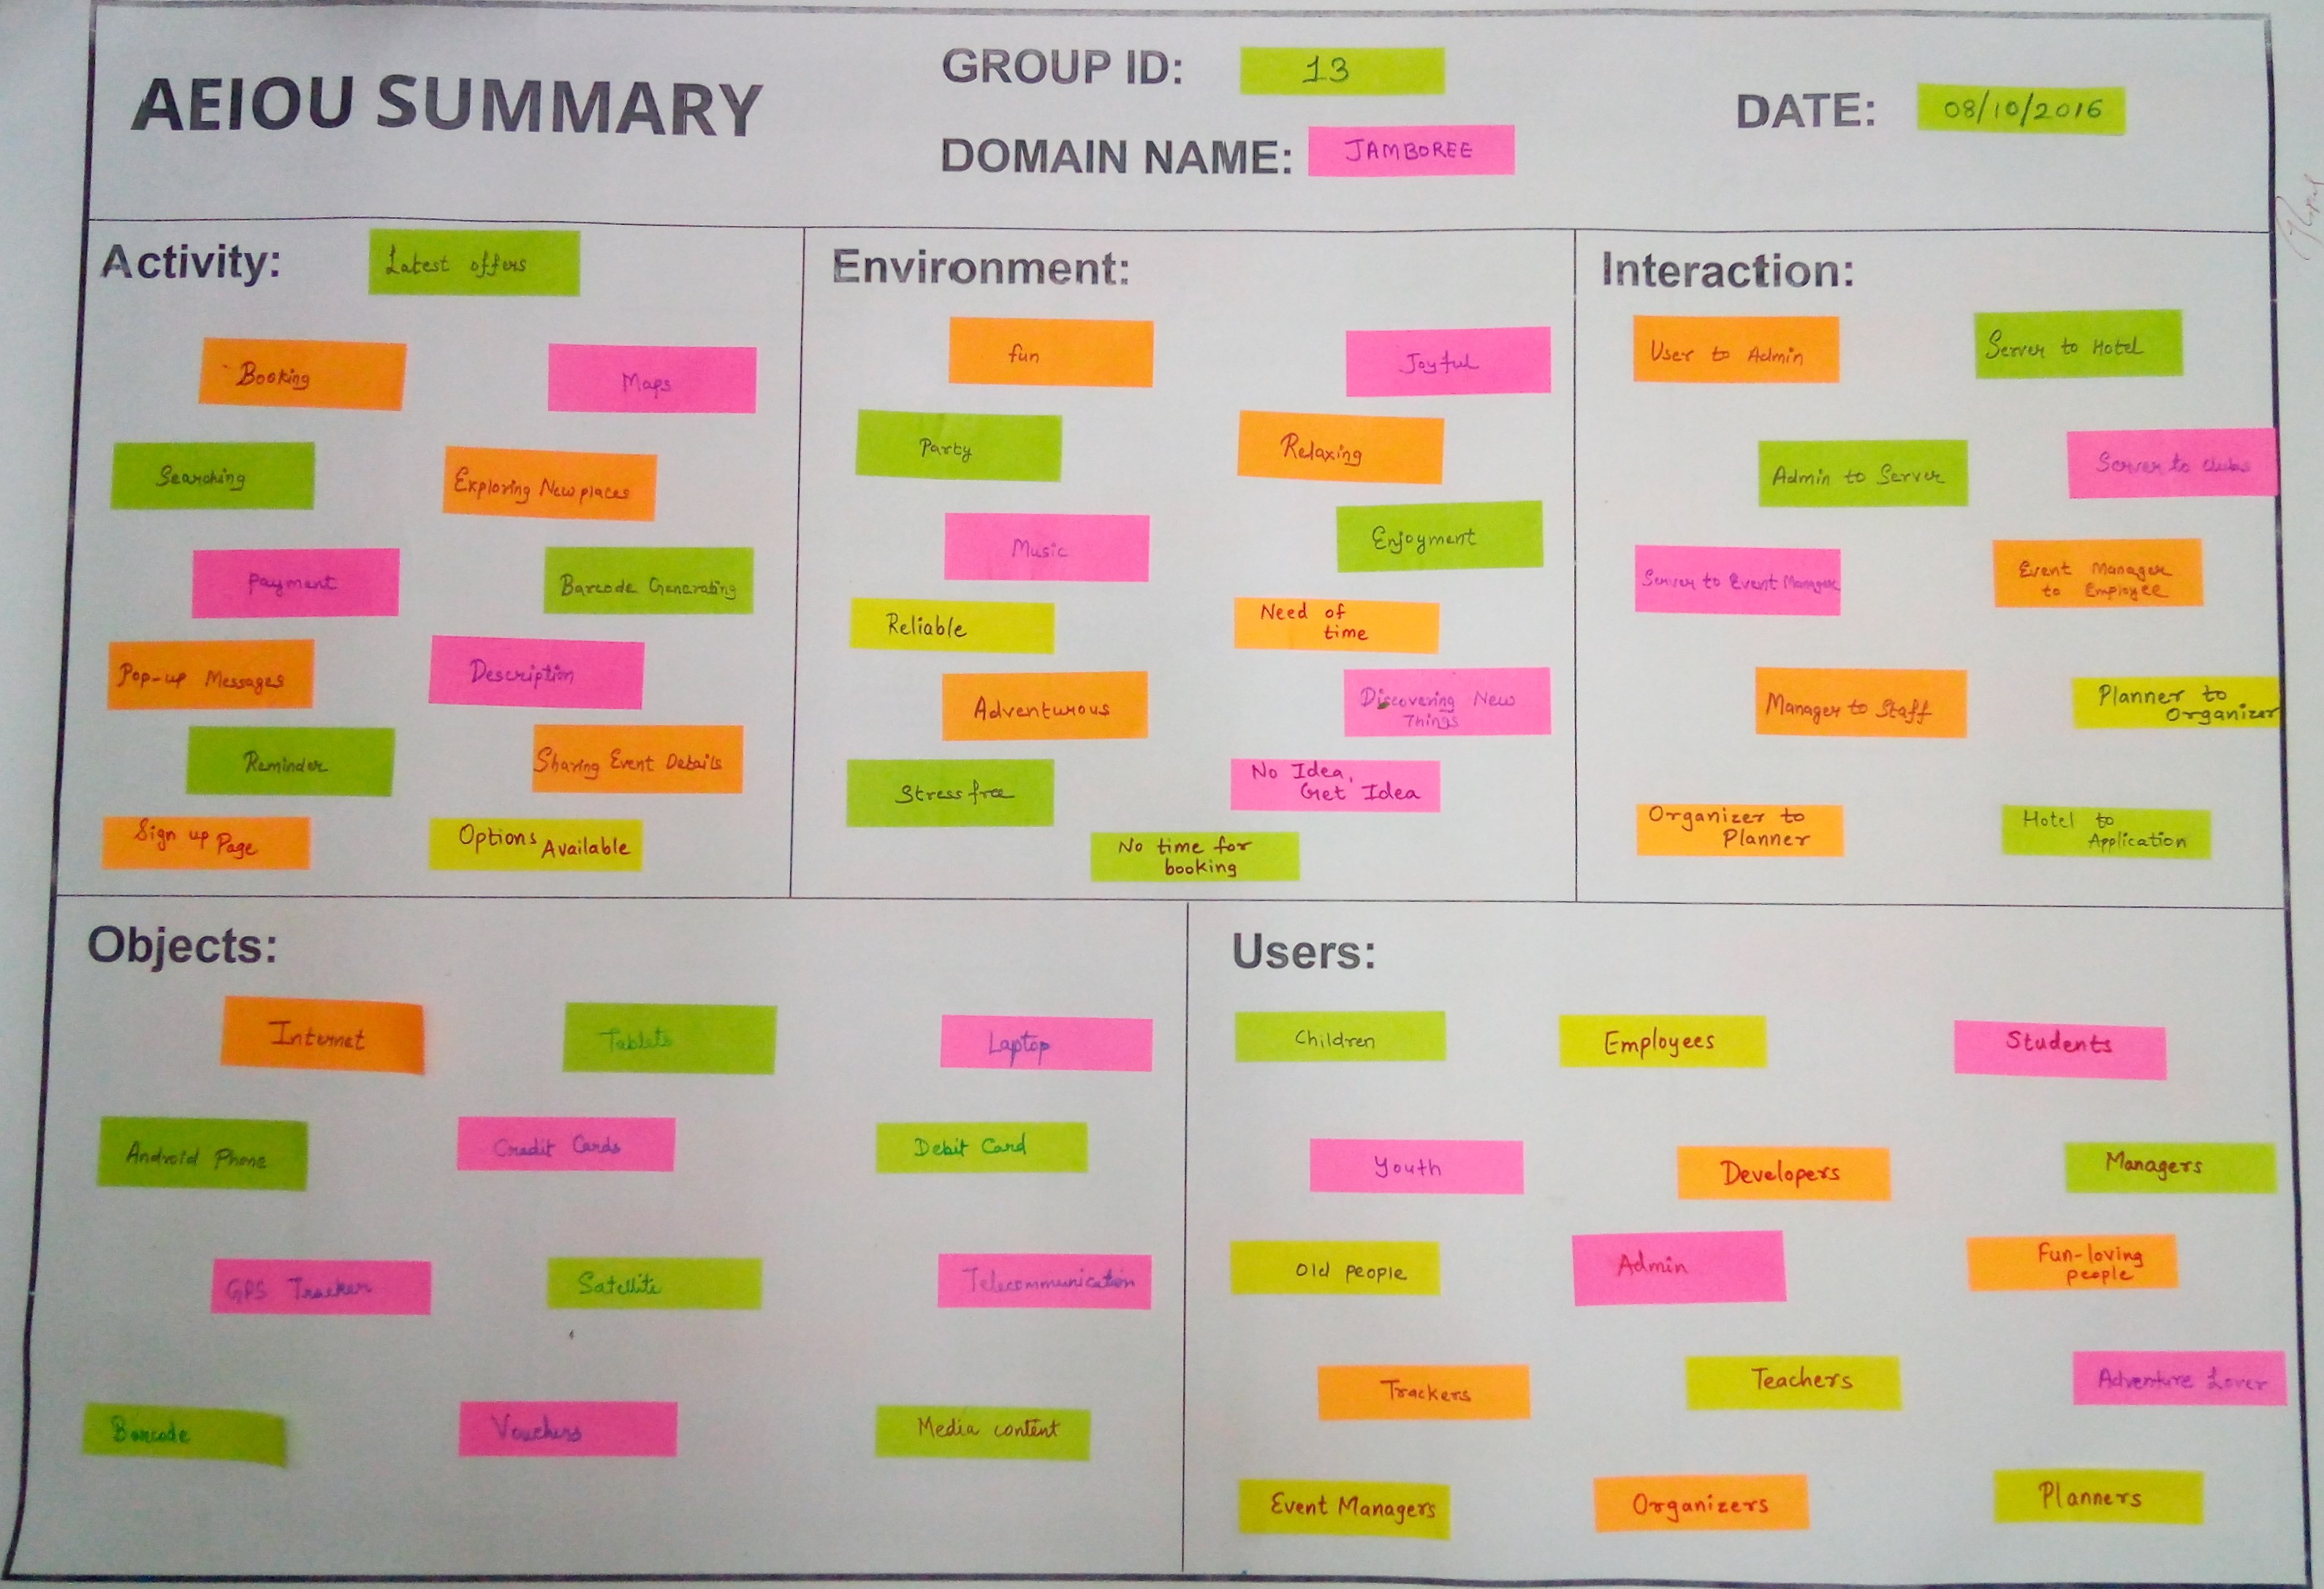 AEIOU SUMMARY
GROUP ID: 13
DOMAIN NAME: JAMBOREE
DATE: 08/10/2016
Activity:
Latest offers
Booking
Maps
Searching
Exploring New places
Payment
Barcode Generating
Pop-up Messages
Description
Reminder
Sharing Event Details
Sign up Page
Options Available
Environment:
fun
Joyful
Party
Relaxing
Music
Enjoyment
Reliable
Need of
time
Adventurous
Discovering New
Things
Stress free
No Idea,
Get Idea
No time for
booking
Interaction:
User to Admin
Server to Hotel
Admin to Server
Server to clubs
Server to Event Manager
Event Manager
to Employee
Manager to Staff
Planner to
Organizer
Organizer to
Planner
Hotel to
Application
Objects:
Internet
Tablets
Laptop
Android Phone
Credit Cards
Debit Card
GPS Tracker
Satellite
Telecommunication
Barcode
Vouchers
Media content
Users:
Children
Employees
Students
Youth
Developers
Managers
Old people
Admin
Fun-loving
people
Trackers
Teachers
Adventure Lover
Event Managers
Organizers
Planners